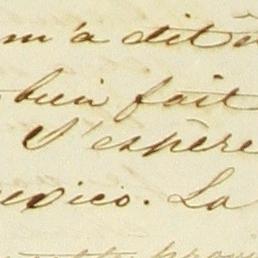 m'a dit
bien fait
J'espère
exico. La